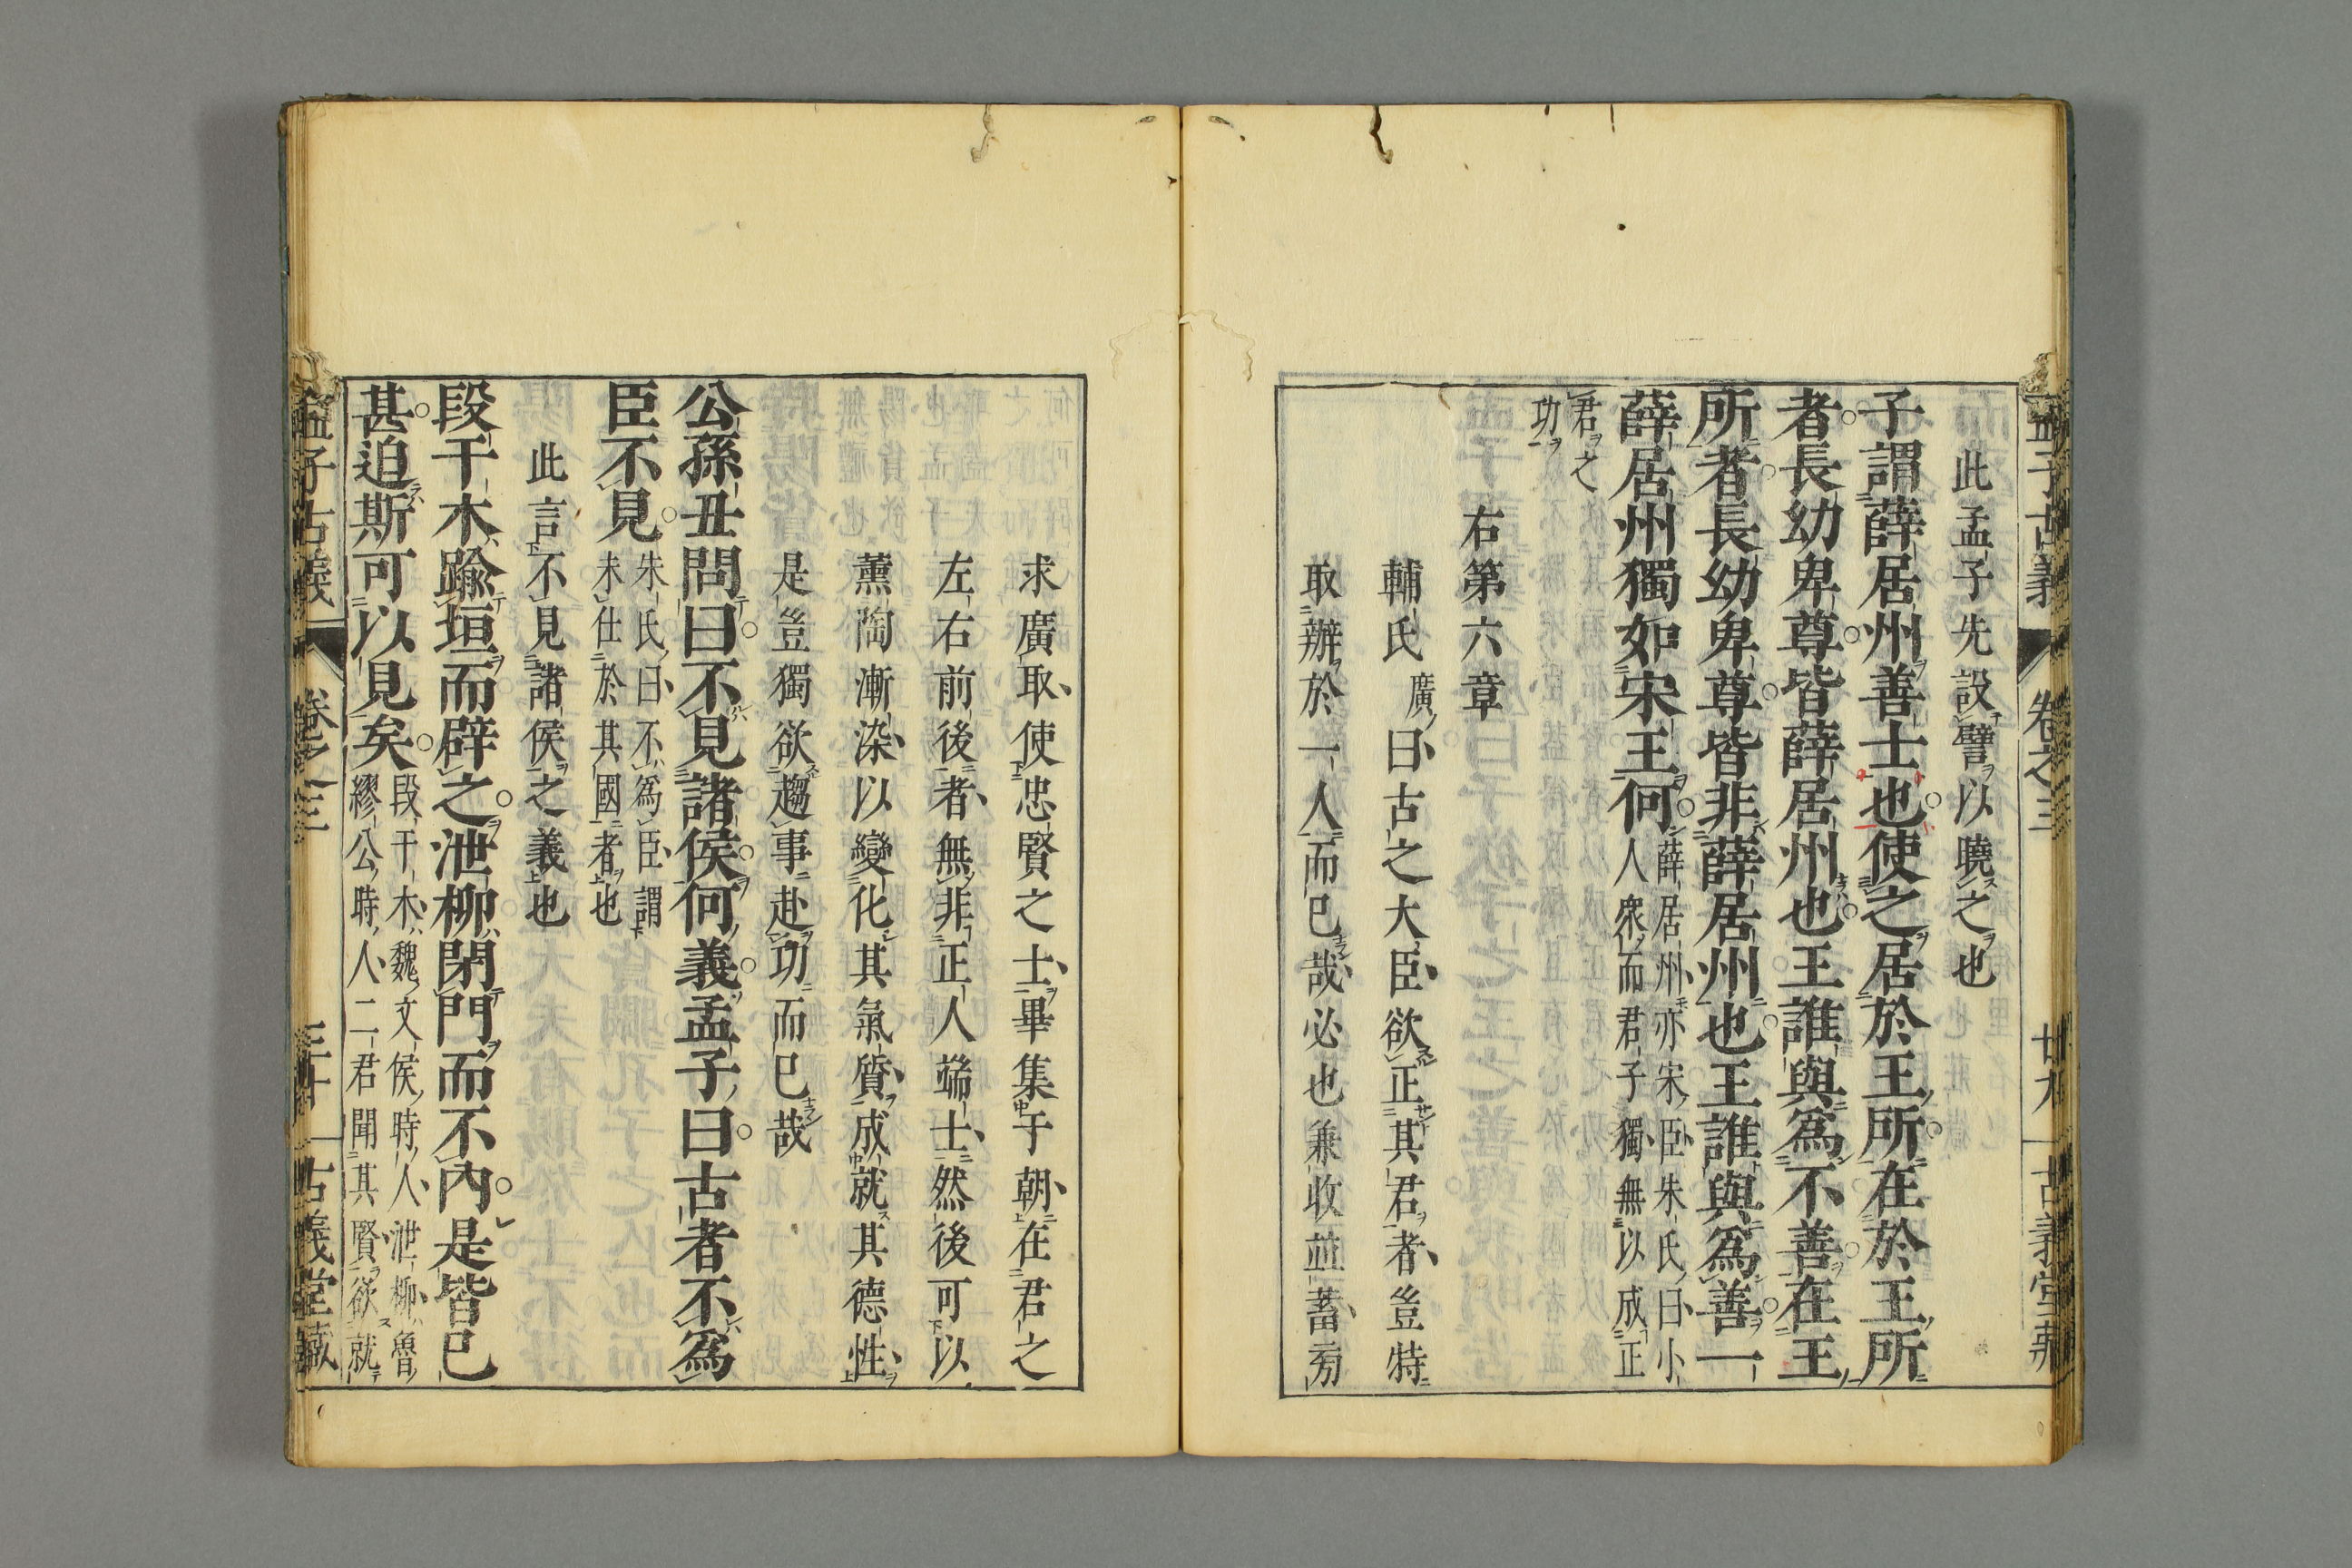 孟子古義 卷之三 廿九 古義堂藏
此孟子先設譬以曉之也
子謂薛居州善士也使之居於王所在於王所
者長幼卑尊皆薛居州也王誰與爲不善在王
所者長幼卑尊皆非薛居州也王誰與爲善一
薛居州獨如宋王何
薛居州亦宋臣朱氏曰小
人衆而君子獨無以成正
君之
功
右第六章
輔氏廣曰古之大臣欲正其君者豈特
取辦於一人而已哉必也兼收並蓄旁
求廣取使忠賢之士畢集于朝在君之
左右前後者無非正人端士然後可以
薰陶漸染以變化其氣質成就其德性
是豈獨欲趨事赴功而已哉
公孫丑問曰不見諸侯何義孟子曰古者不爲
臣不見
朱氏曰不爲臣謂
未仕於其國者也
此言不見諸侯之義也
段干木踰垣而辟之泄柳閉門而不內是皆已
甚迫斯可以見矣
段干木魏文侯時人泄柳魯
繆公時人二君聞其賢欲就
孟子古義 卷之三 三十 古義堂藏